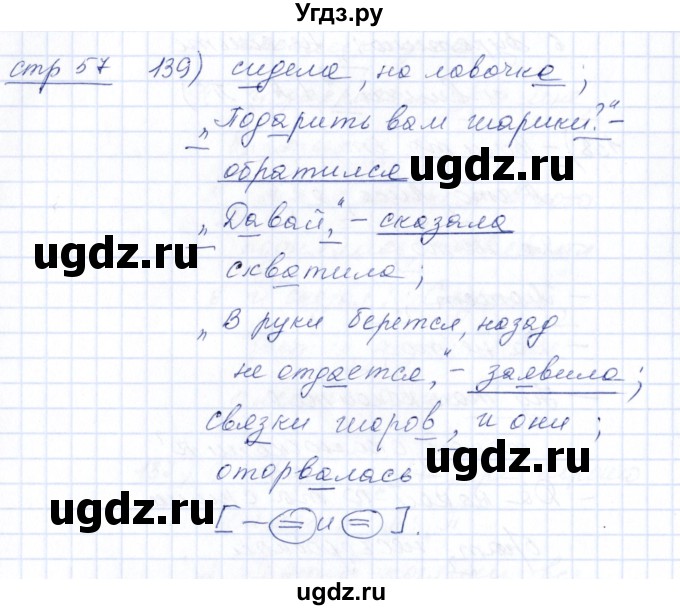 Угдз.ру
стр 57 139) сидела, на лавочке;
„Подарить вам шарики?“ –
обратился
ugdz.ru ugdz.ru
„Давай,“ – сказала
ugdz.ru
схватила;
„В руки берется, назад
не отдается,“ – заявила;
ugdz.ru
связки шаров, и они;
ugdz.ru
оторвалась
[ – = и = ].
ugdz.ru
ugdz.ru